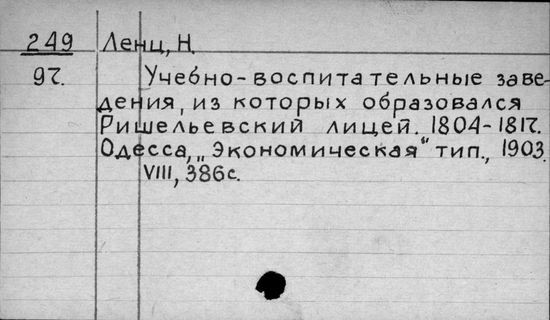 249 Ленц, Н.
97. Учебно-воспитательные заве-
дения, из которых образовался
Ришельевский лицей. 1804-1817.
Одесса, „Экономическая“ тип., 1903.
VIII, 386с.